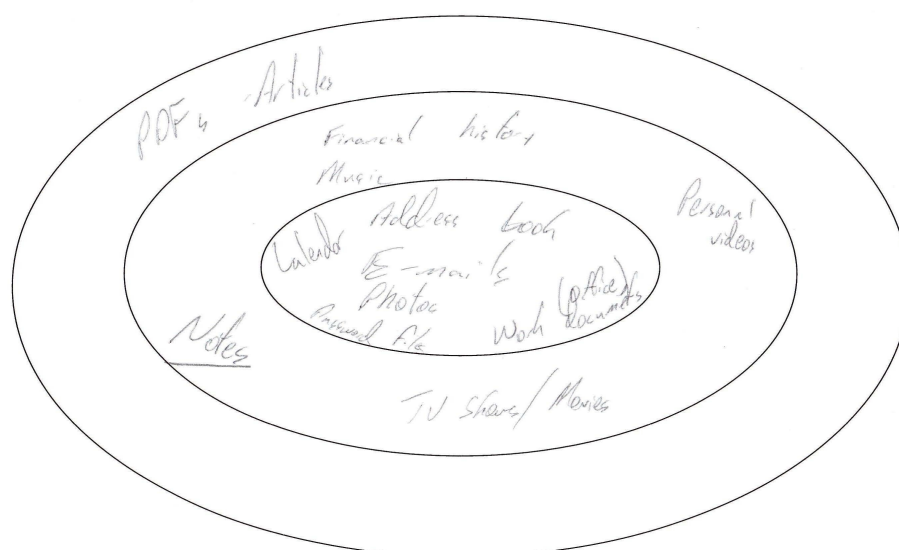 PDFs - Articles
Financial history
Music
Personal
videos
Calendar
Address book
E-mails
Photos
Password file
(office)
Work documents
Notes
TV shows / Movies